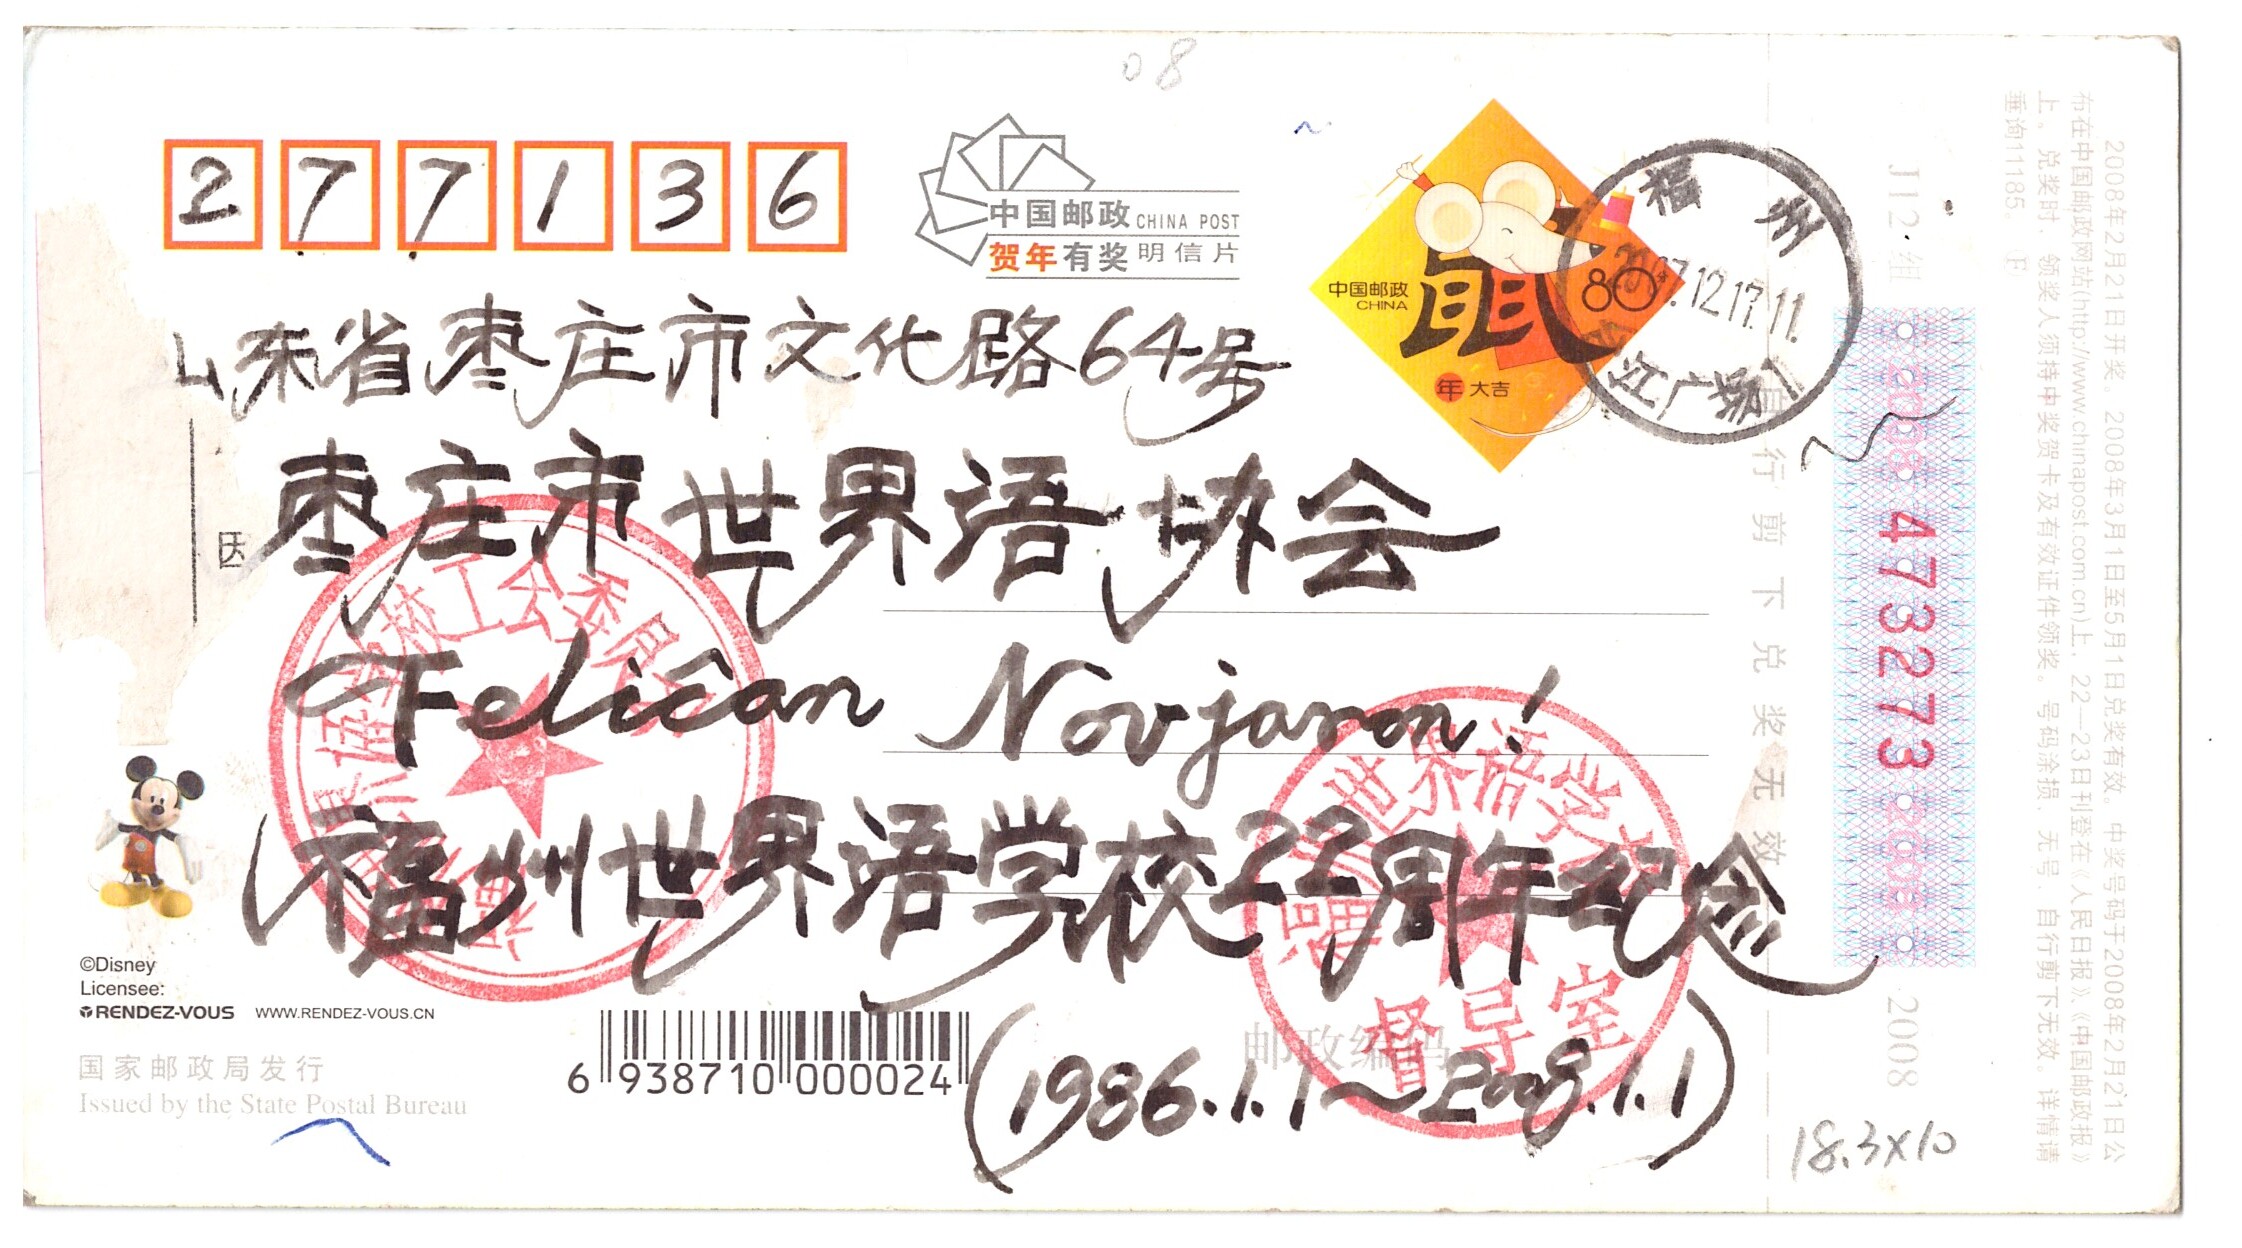 08
277136
中国邮政 CHINA POST
贺年有奖明信片
中国邮政
CHINA
鼠
80
年大吉
福州
2007.12.17.11
广场
山东省枣庄市文化路64号
枣庄市世界语协会
Feliĉan Novjaron!
福州世界语学校22周年纪念
(1986.1.1~2008.1.1)
工会委员
世界语学校
督导室
©Disney
Licensee:
RENDEZ-VOUS WWW.RENDEZ-VOUS.CN
国家邮政局发行
Issued by the State Postal Bureau
6 938710 000024
邮政编码
自行剪下兑奖无效
J12组
2008 473273 2008
2008
2008年2月21日开奖。2008年3月1日至5月1日兑奖有效。中奖号码于2008年2月21日公
布在中国邮政网站(http://www.chinapost.com.cn)上,22—23日刊登在《人民日报》、《中国邮政报》
上。兑奖时,领奖人须持中奖贺卡及有效证件领奖。号码涂损、无号、自行剪下无效。详情请
垂询11185。 F
18.3x10